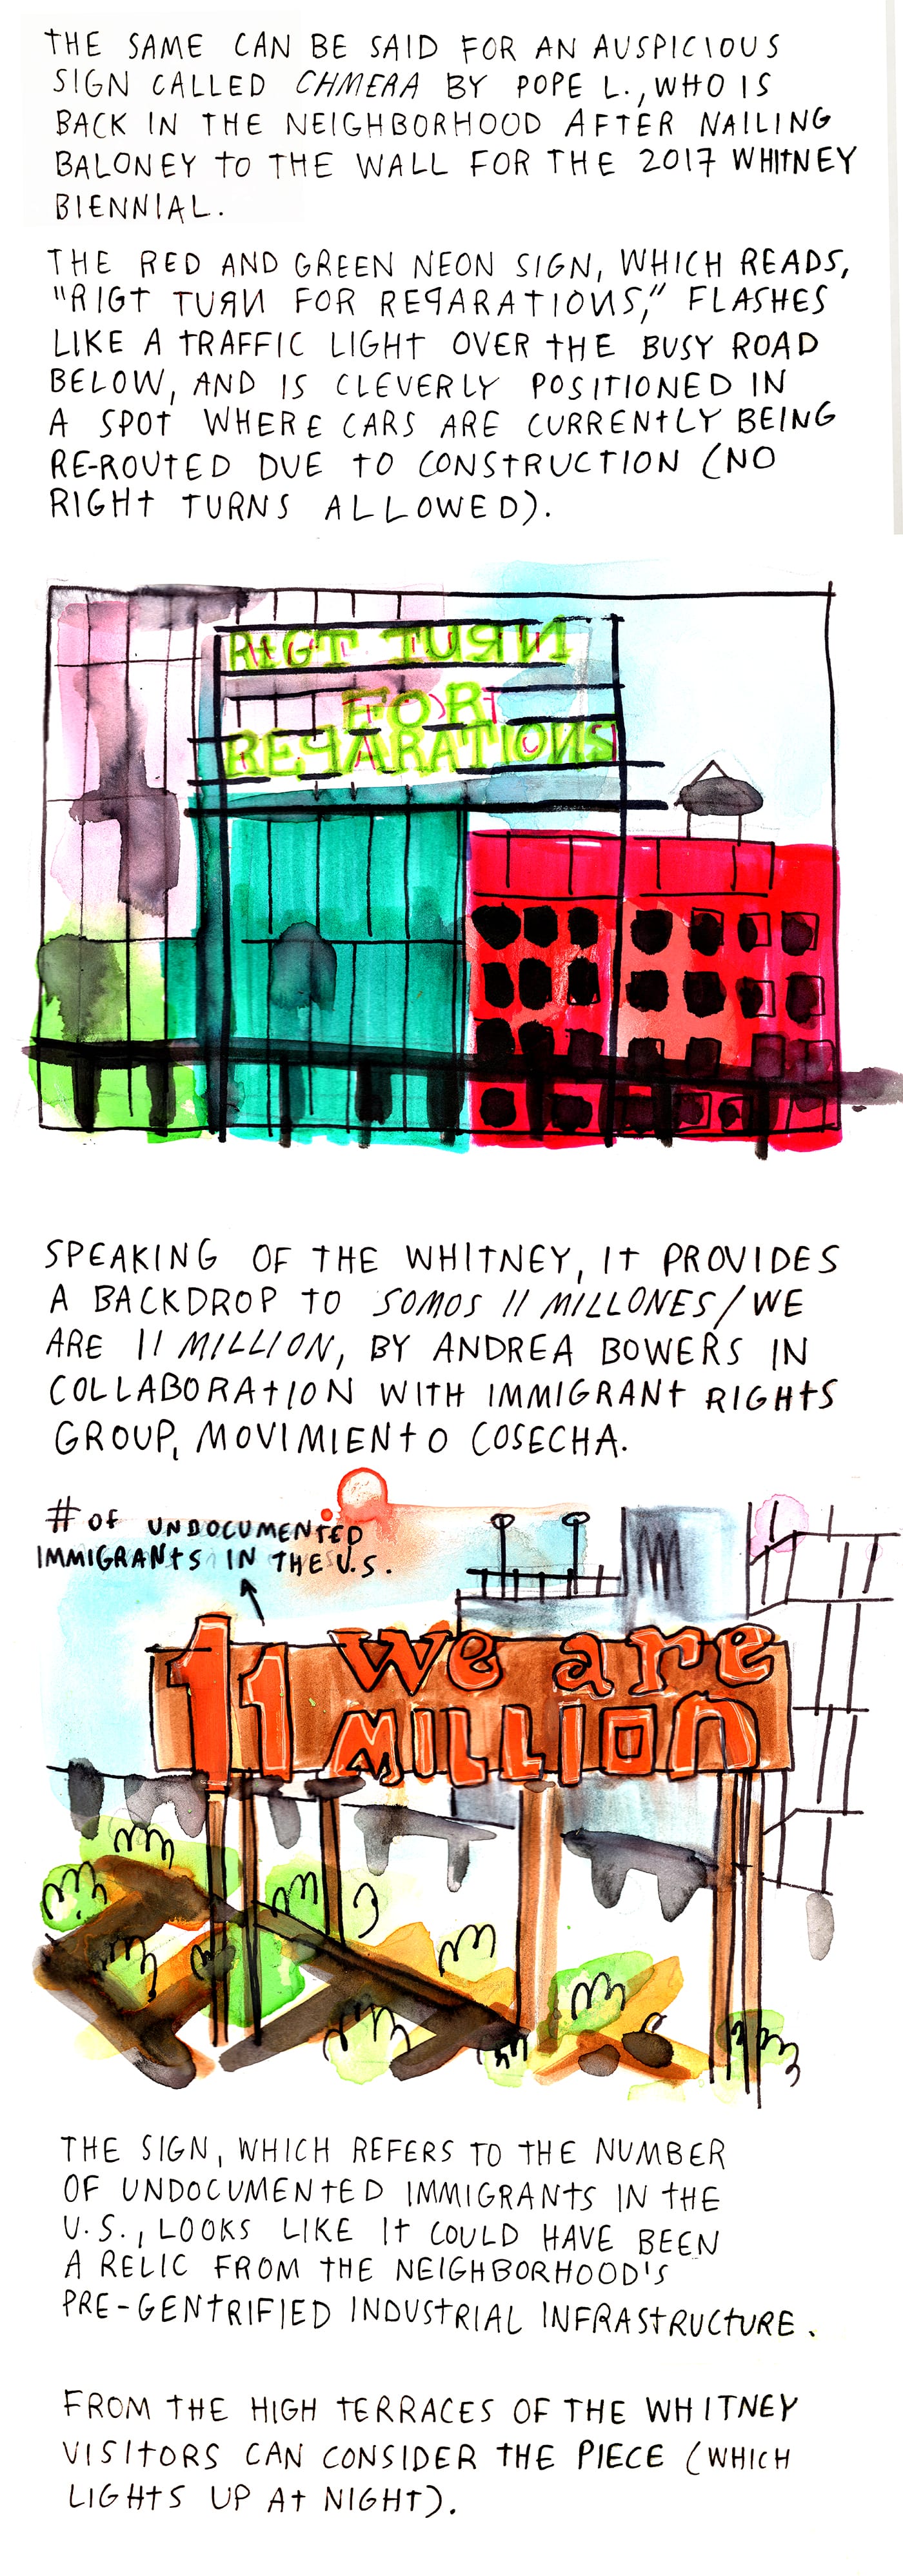 THE SAME CAN BE SAID FOR AN AUSPICIOUS
SIGN CALLED CHMERA BY POPE L., WHO IS
BACK IN THE NEIGHBORHOOD AFTER NAILING
BALONEY TO THE WALL FOR THE 2017 WHITNEY
BIENNIAL.
THE RED AND GREEN NEON SIGN, WHICH READS,
"RIGT TUЯИ FOR REꟼARATIOИS," FLASHES
LIKE A TRAFFIC LIGHT OVER THE BUSY ROAD
BELOW, AND IS CLEVERLY POSITIONED IN
A SPOT WHERE CARS ARE CURRENTLY BEING
RE-ROUTED DUE TO CONSTRUCTION (NO
RIGHT TURNS ALLOWED).
RIGT TUЯИ
FOR
REꟼARATIOИS
SPEAKING OF THE WHITNEY, IT PROVIDES
A BACKDROP TO SOMOS 11 MILLONES/WE
ARE 11 MILLION, BY ANDREA BOWERS IN
COLLABORATION WITH IMMIGRANT RIGHTS
GROUP, MOVIMIENTO COSECHA.
# OF UNDOCUMENTED
IMMIGRANTS IN THE U.S.
11 We are
MILLIOn
THE SIGN, WHICH REFERS TO THE NUMBER
OF UNDOCUMENTED IMMIGRANTS IN THE
U.S., LOOKS LIKE IT COULD HAVE BEEN
A RELIC FROM THE NEIGHBORHOOD'S
PRE-GENTRIFIED INDUSTRIAL INFRASTRUCTURE.
FROM THE HIGH TERRACES OF THE WHITNEY
VISITORS CAN CONSIDER THE PIECE (WHICH
LIGHTS UP AT NIGHT).